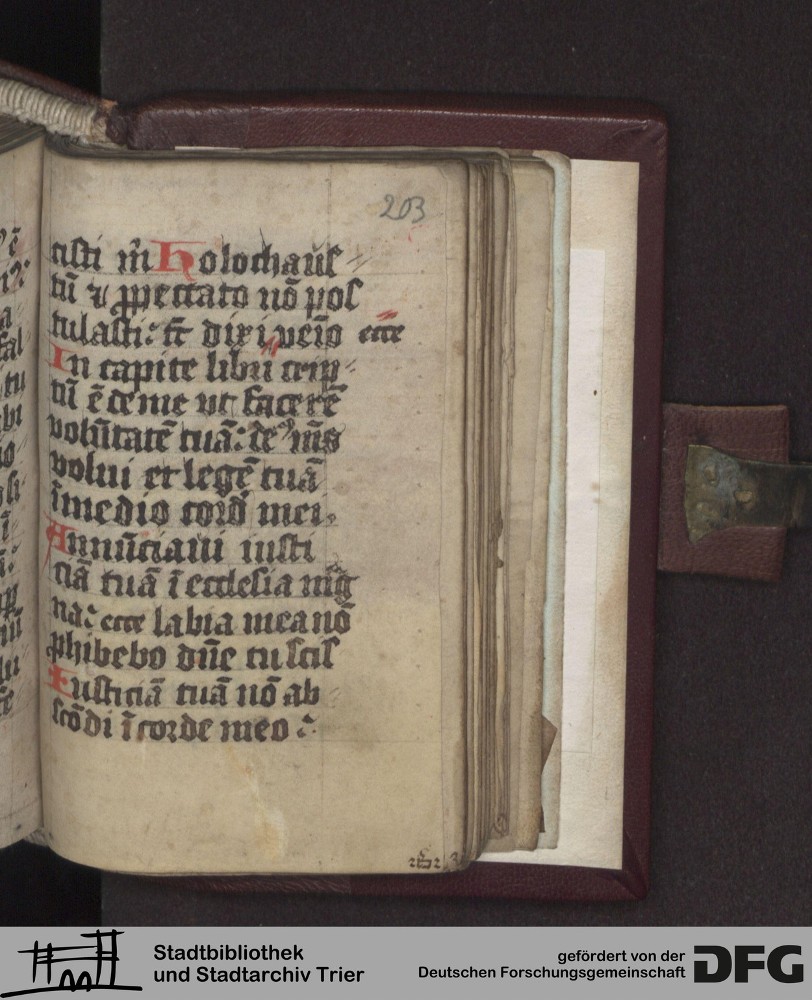 203
cisti m̄ Holochaus
tū ⁊ ꝓ peccato nō pos
tulasti: tc̄ dixi veīo ecce
In capite libri scrip
tū ē de me vt facerē
volūtatē tuā: de⁹ m̄s
volui et legē tuā
ī medio cord̄ mei.
Annūciaui iusti
ciā tuā ī ecclesia maḡ
na: ecce labia mea nō
ꝓhibebo dn̄e tu scis
Iusticiā tuā nō ab
scōdi ī corde meo:
Stadtbibliothek
und Stadtarchiv Trier
gefördert von der
Deutschen Forschungsgemeinschaft
DFG